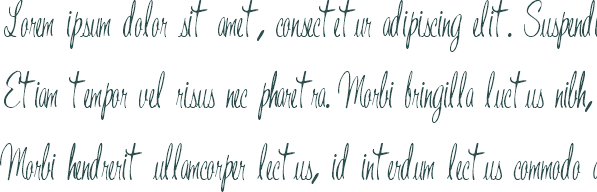 Lorem ipsum dolor sit amet, consectetur adipiscing elit. Suspend
Etiam tempor vel risus nec pharetra. Morbi bringilla luctus nibh,
Morbi hendrerit ullamcorper lectus, id interdum lectus commodo a